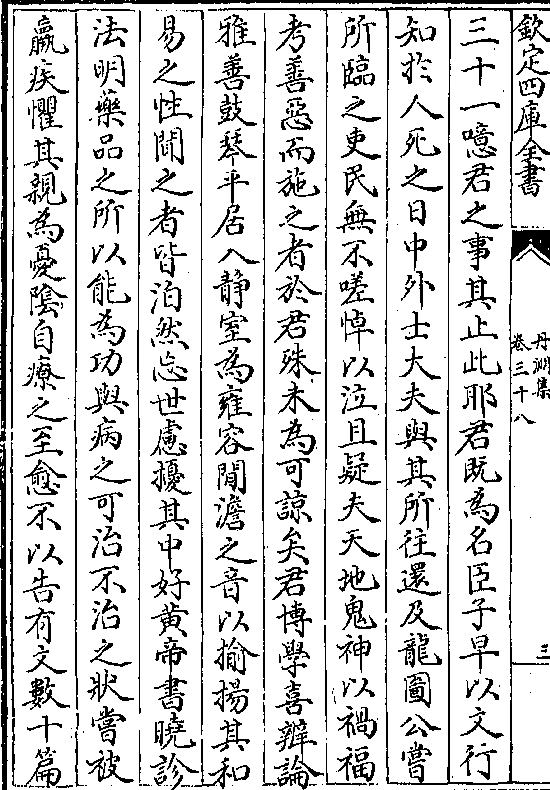 欽定四庫全書
丹淵集
卷三十八
三
三十一噫君之事其止此耶君既為名臣子早以文行
知於人死之日中外士大夫與其所往還及龍圖公嘗
所臨之吏民無不嗟悼以泣且疑夫天地鬼神以禍福
考善惡而施之者於君殊未為可諒矣君博學喜辯論
雅善鼓琴平居入静室為雍容閒澹之音以揄揚其和
易之性聞之者皆泊然忘世慮擾其中好黄帝書曉診
法明藥品之所以能為功與病之可治不治之狀嘗被
羸疾懼其親為憂隂自療之至愈不以告有文數十篇